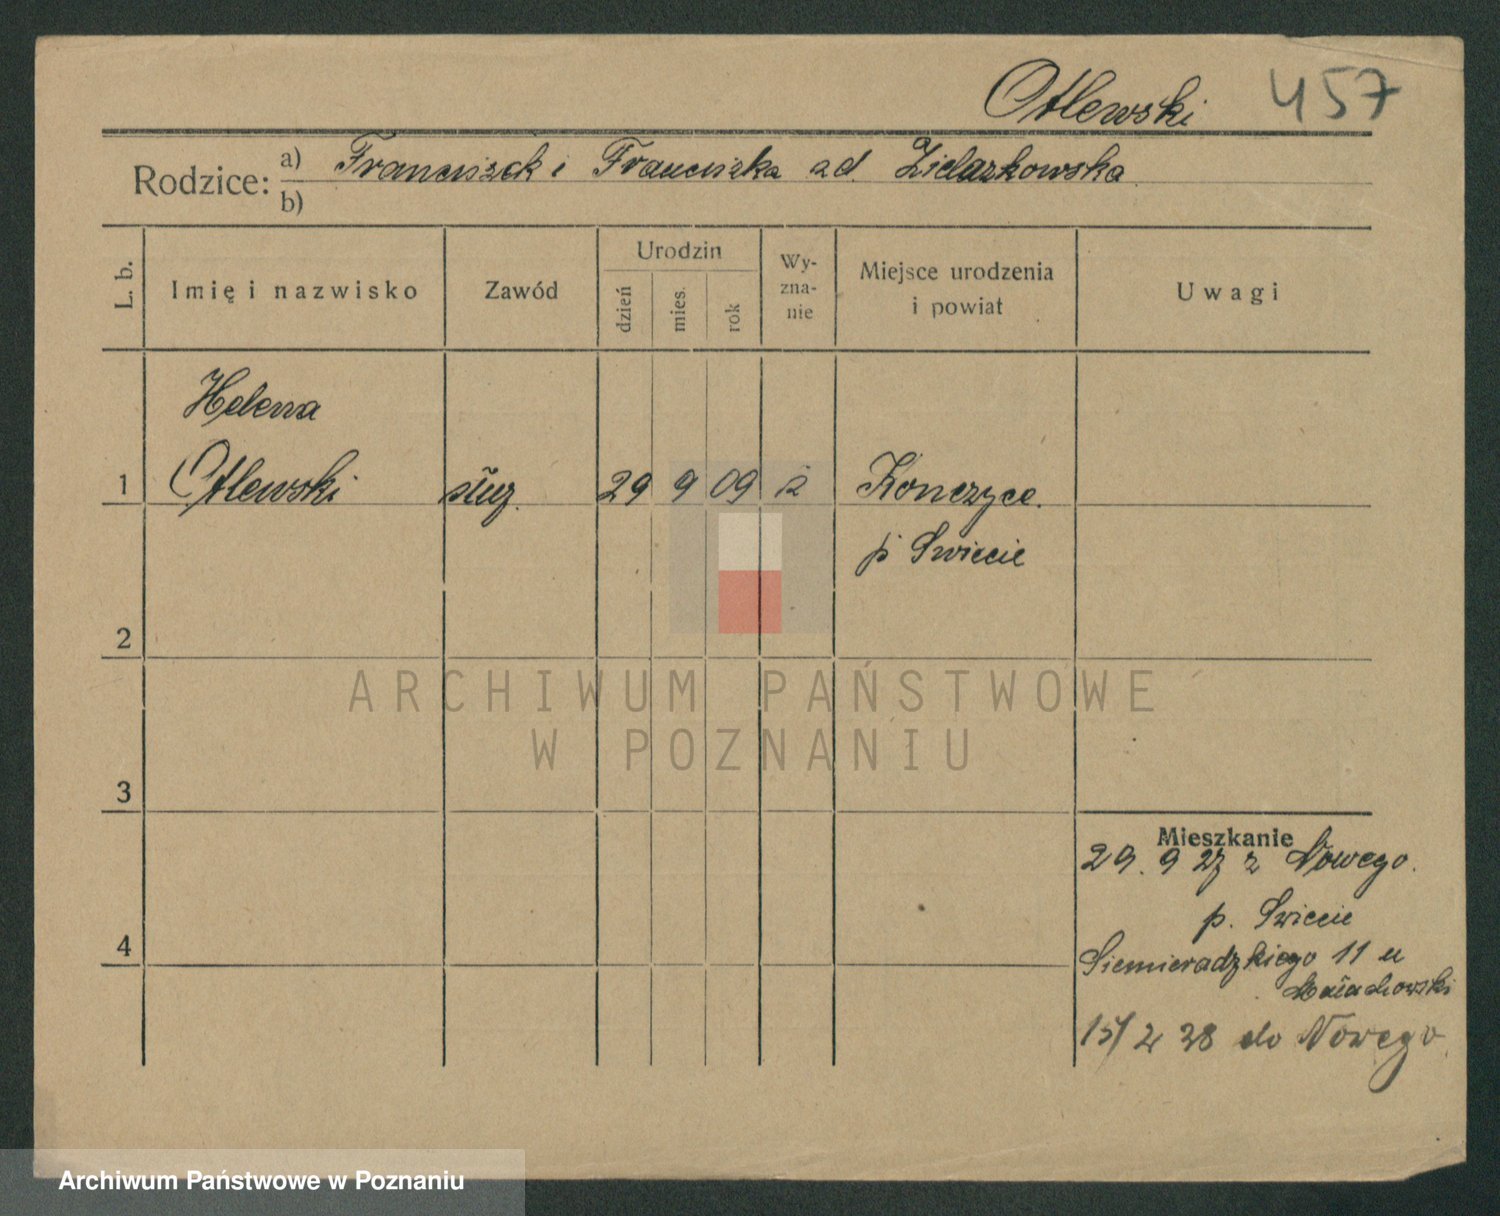 Otlewski 457
Rodzice: a) Franciszek i Franciszka zd. Zielazkowska
b)
L. b. Imię i nazwisko Zawód Urodzin dzień mies. rok Wy-zna-nie Miejsce urodzenia i powiat Uwagi
Helena
1 Otlewski służ. 29 9 09 Konczyce.
p Swiecie
2
ARCHIWUM PAŃSTWOWE
W POZNANIU
3
Mieszkanie
29. 9 27 z Nowego.
p. Swiecie
4
Siemieradzkiego 11 u
Małachowski
15/ 2 28 do Nowego
Archiwum Państwowe w Poznaniu